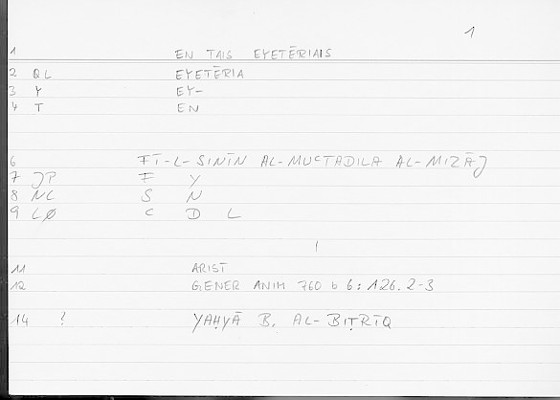 1
1 EN TAIS EYETĒRIAIS
2 QL EYETĒRIA
3 Y EY-
4 T EN
6 FĪ-L-SINĪN AL-MUCTADILA AL-MIZĀJ
7 JP F Y
8 NL S N
9 LØ C D L
1
11 ARIST
12 GENER ANIM 760 b 6 : 126. 2-3
14 ? YAḤYĀ B. AL-BIṬRĪQ